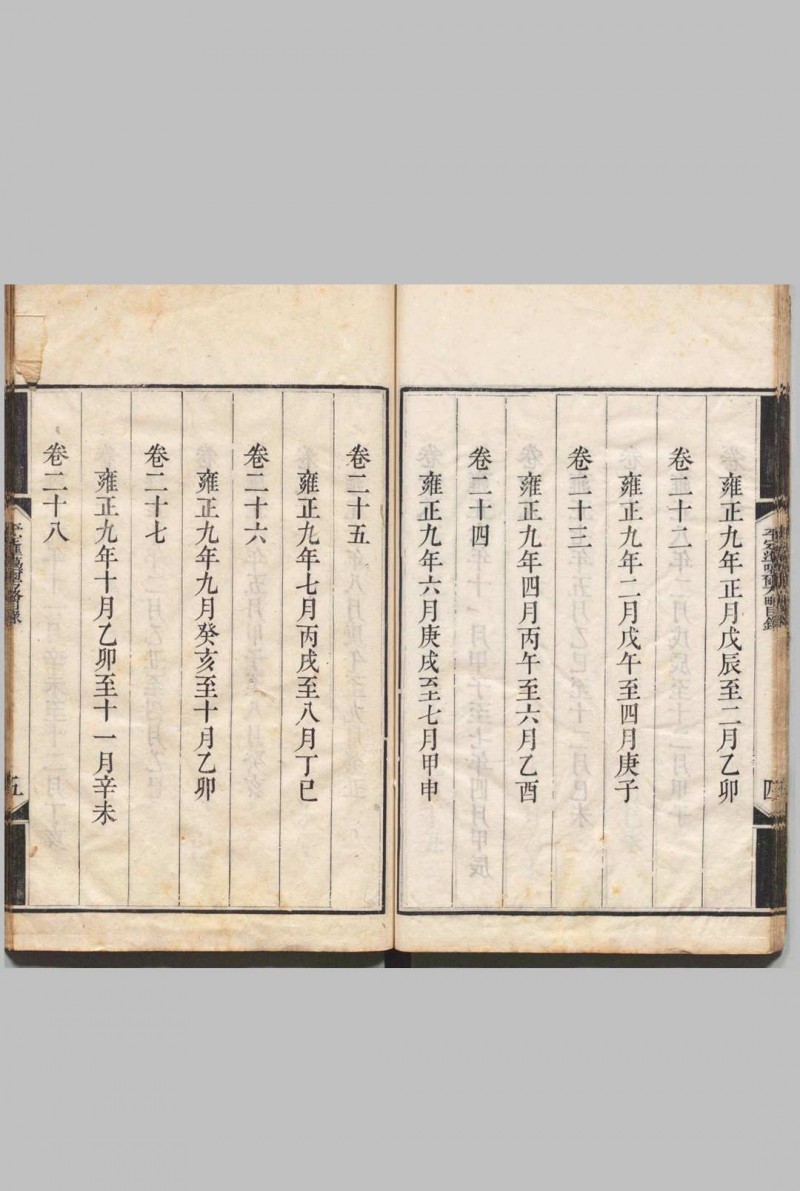 雍正九年正月戊辰至二月乙卯
卷二十二
雍正九年二月戊午至四月庚子
卷二十三
雍正九年四月丙午至六月乙酉
卷二十四
雍正九年六月庚戌至七月甲申
卷二十五
雍正九年七月丙戌至八月丁巳
卷二十六
雍正九年九月癸亥至十月乙卯
卷二十七
雍正九年十月乙卯至十一月辛未
卷二十八
四
五